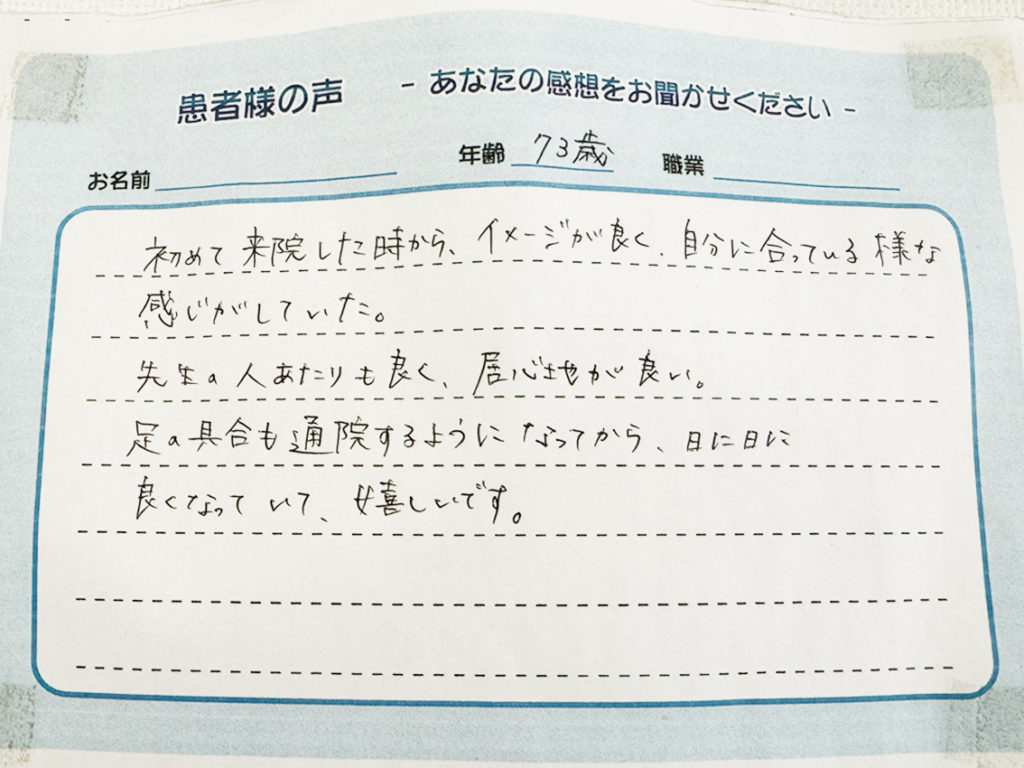 患者様の声 - あなたの感想をお聞かせください -
お名前 年齢 73歳 職業
初めて来院した時から、イメージが良く、自分に合っている様な
感じがしていた。
先生の人あたりも良く、居心地が良い。
足の具合も通院するようになってから、日に日に
良くなっていて、嬉しいです。